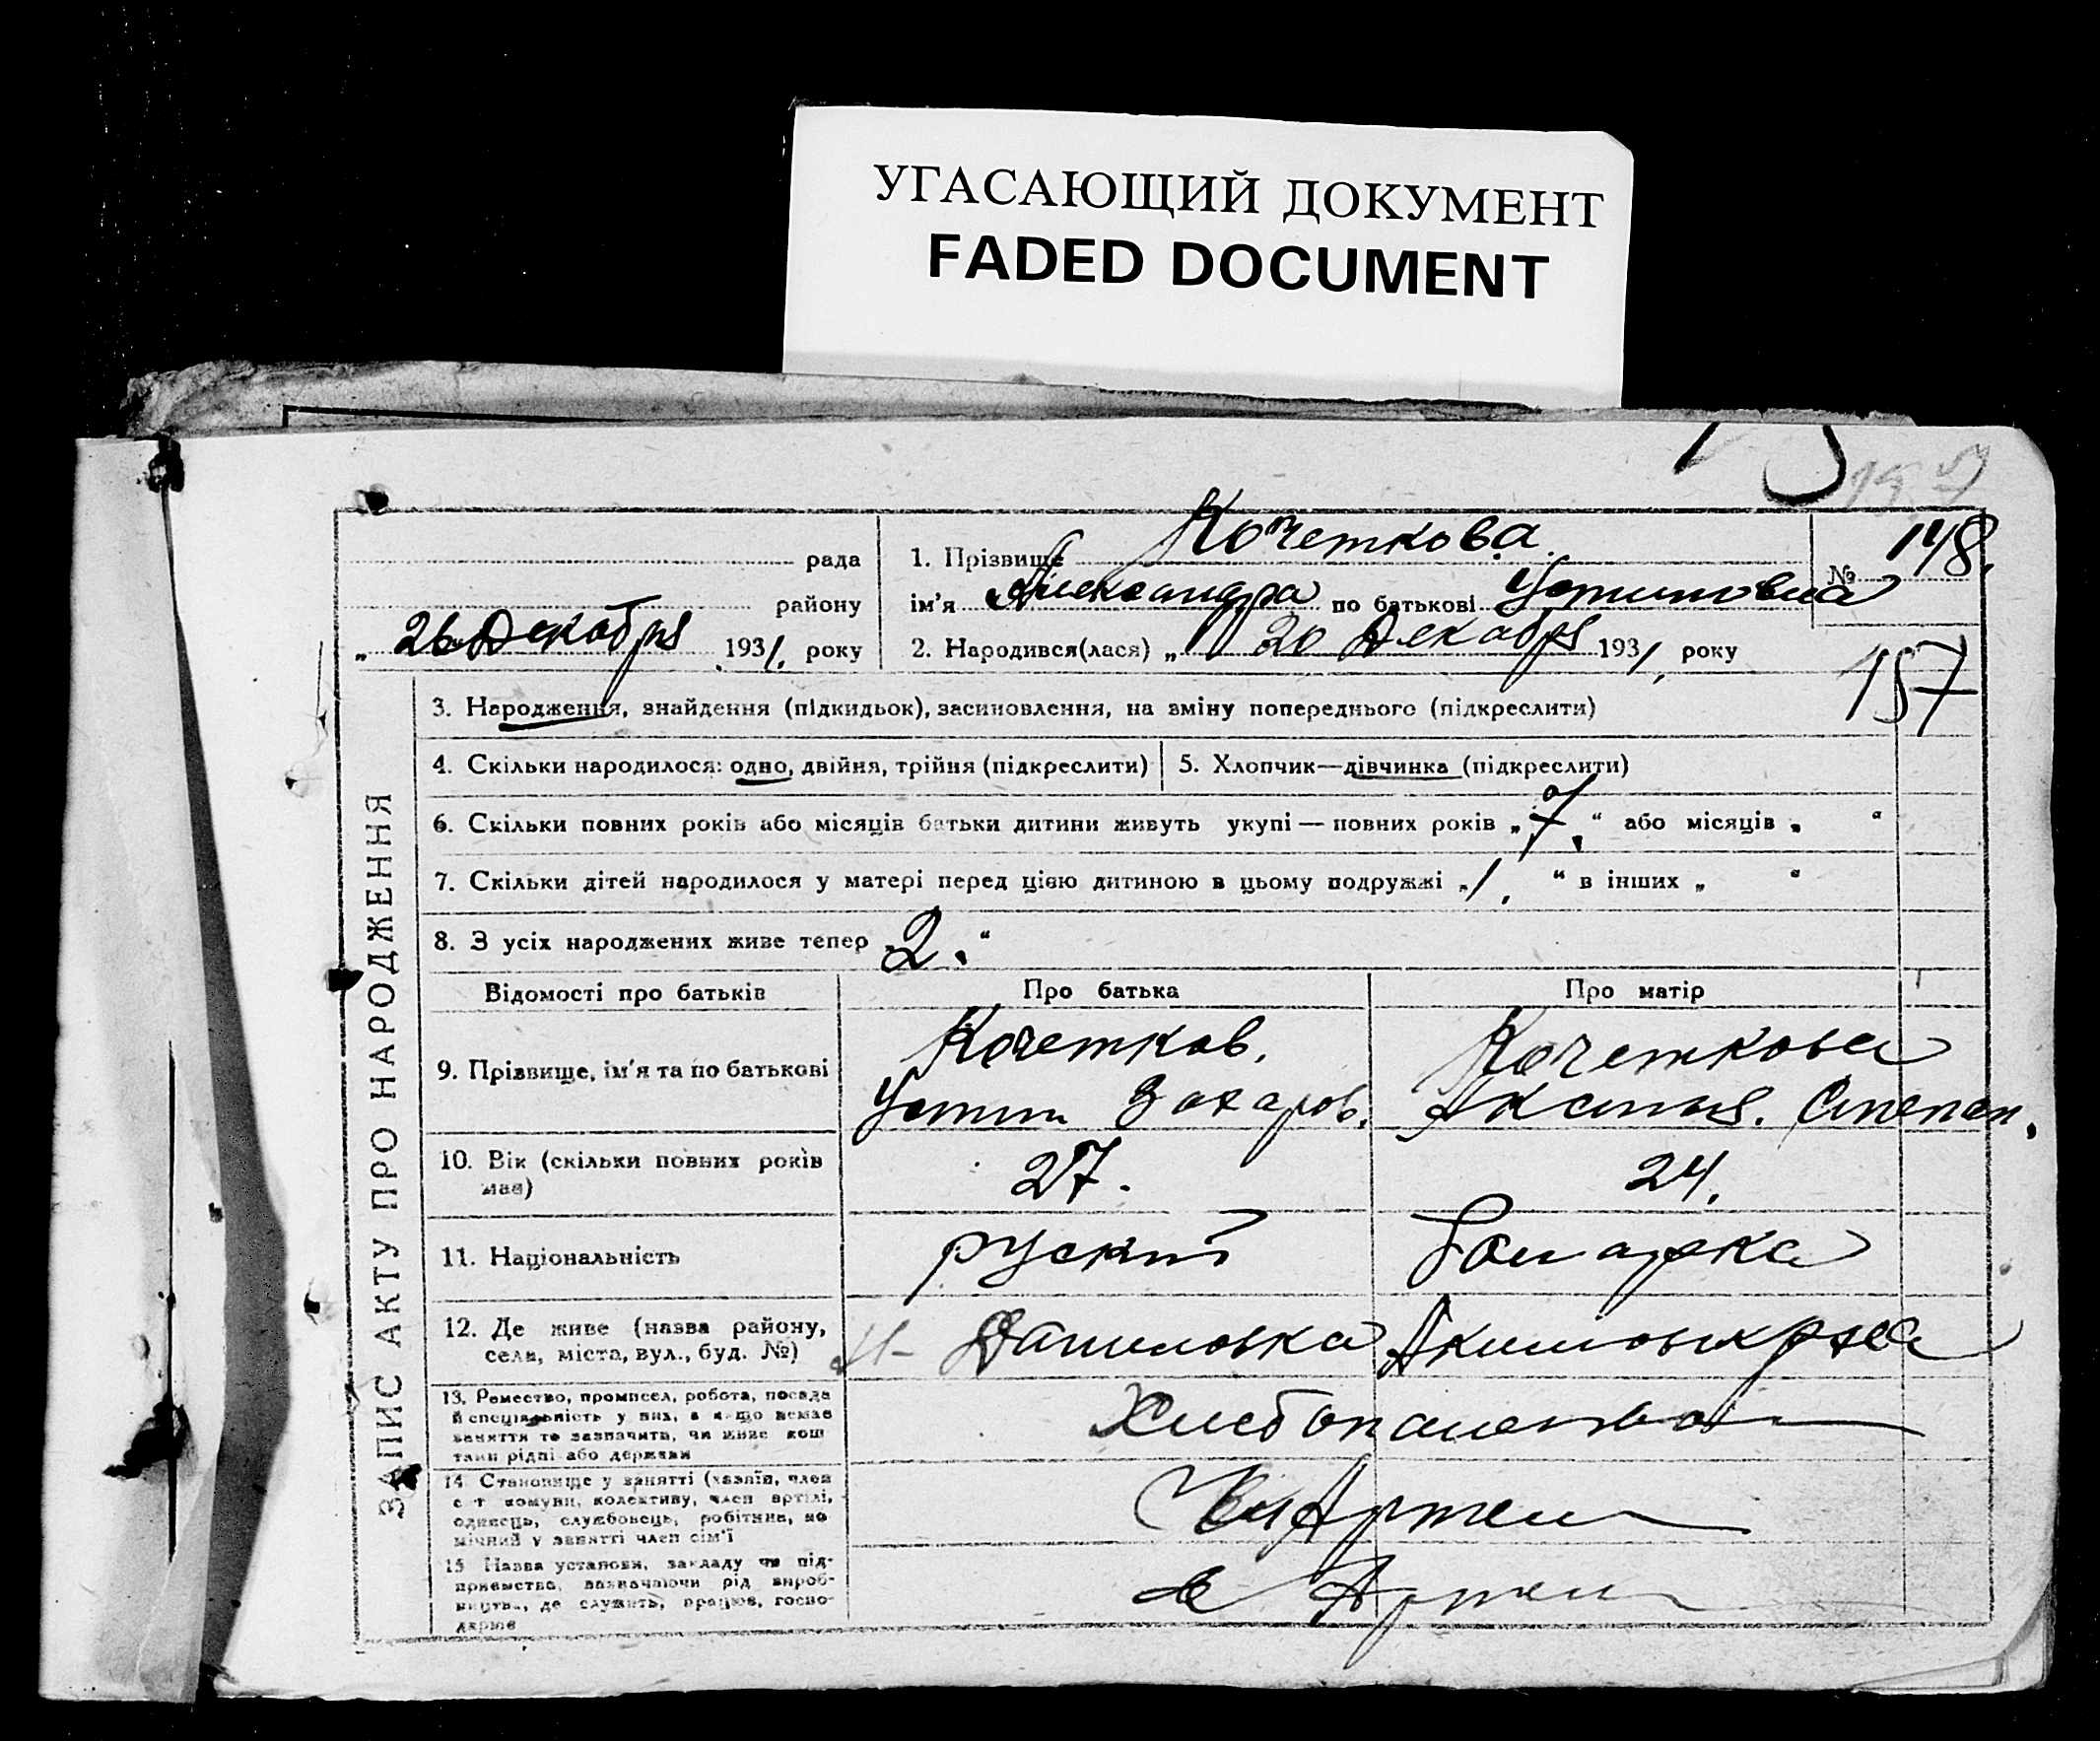 УГАСАЮЩИЙ ДОКУМЕНТ
FADED DOCUMENT
157
рада
району
„ 26 Декабря 1931. року
1. Прізвище Кочеткова
ім'я Александра по батькові Устиновна
№ 148.
2. Народився(лася) „ 20 Декабря 1931, року
ЗАПИС АКТУ ПРО НАРОДЖЕННЯ
3. Народження, знайдення (підкидьок), засиновлення, на зміну попереднього (підкреслити)
4. Скільки народилося: одно, двійня, трійня (підкреслити)
5. Хлопчик—дівчинка (підкреслити)
6. Скільки повних років або місяців батьки дитини живуть укупі — повних років „ 7. “ або місяців „ “
7. Скільки дітей народилося у матері перед цією дитиною в цьому подружжі „ 1. “ в інших „ “
8. З усіх народжених живе тепер „ 2. “
Відомості про батьків
Про батька
Про матір
9. Прізвище, ім'я та по батькові
Кочетков.
Устин Захаров.
Кочеткова
Аксинья. Степан.
10. Вік (скільки повних років
має)
27.
24.
11. Національність
руский
12. Де живе (назва району,
села, міста, вул., буд. №)
Н- Даниловка
13. Ремество, промисел, робота, посада
й спеціяльність у них, а якщо немає
заняття то зазначити, чи живе кош
тами рідні або держави
14 Становище у занятті (хазяїн, член
с т комуни, колективу, член артілі,
одинець, службовець, робітник, по
мічний у занятті член сім'ї
Артели
15 Назва установи, закладу чи під-
приємства, зазначаючи рід вироб-
ництва, де служить, працює, госпо-
дарює
в Артели